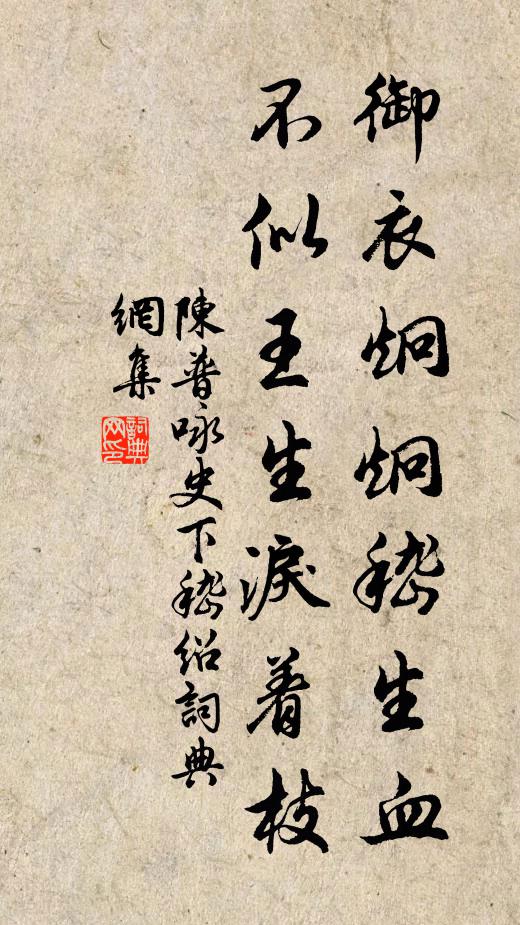 御衣炯炯嵇生血
不似王生淚着枝
陳普咏史下嵇紹詞典
網集
詞典
网印